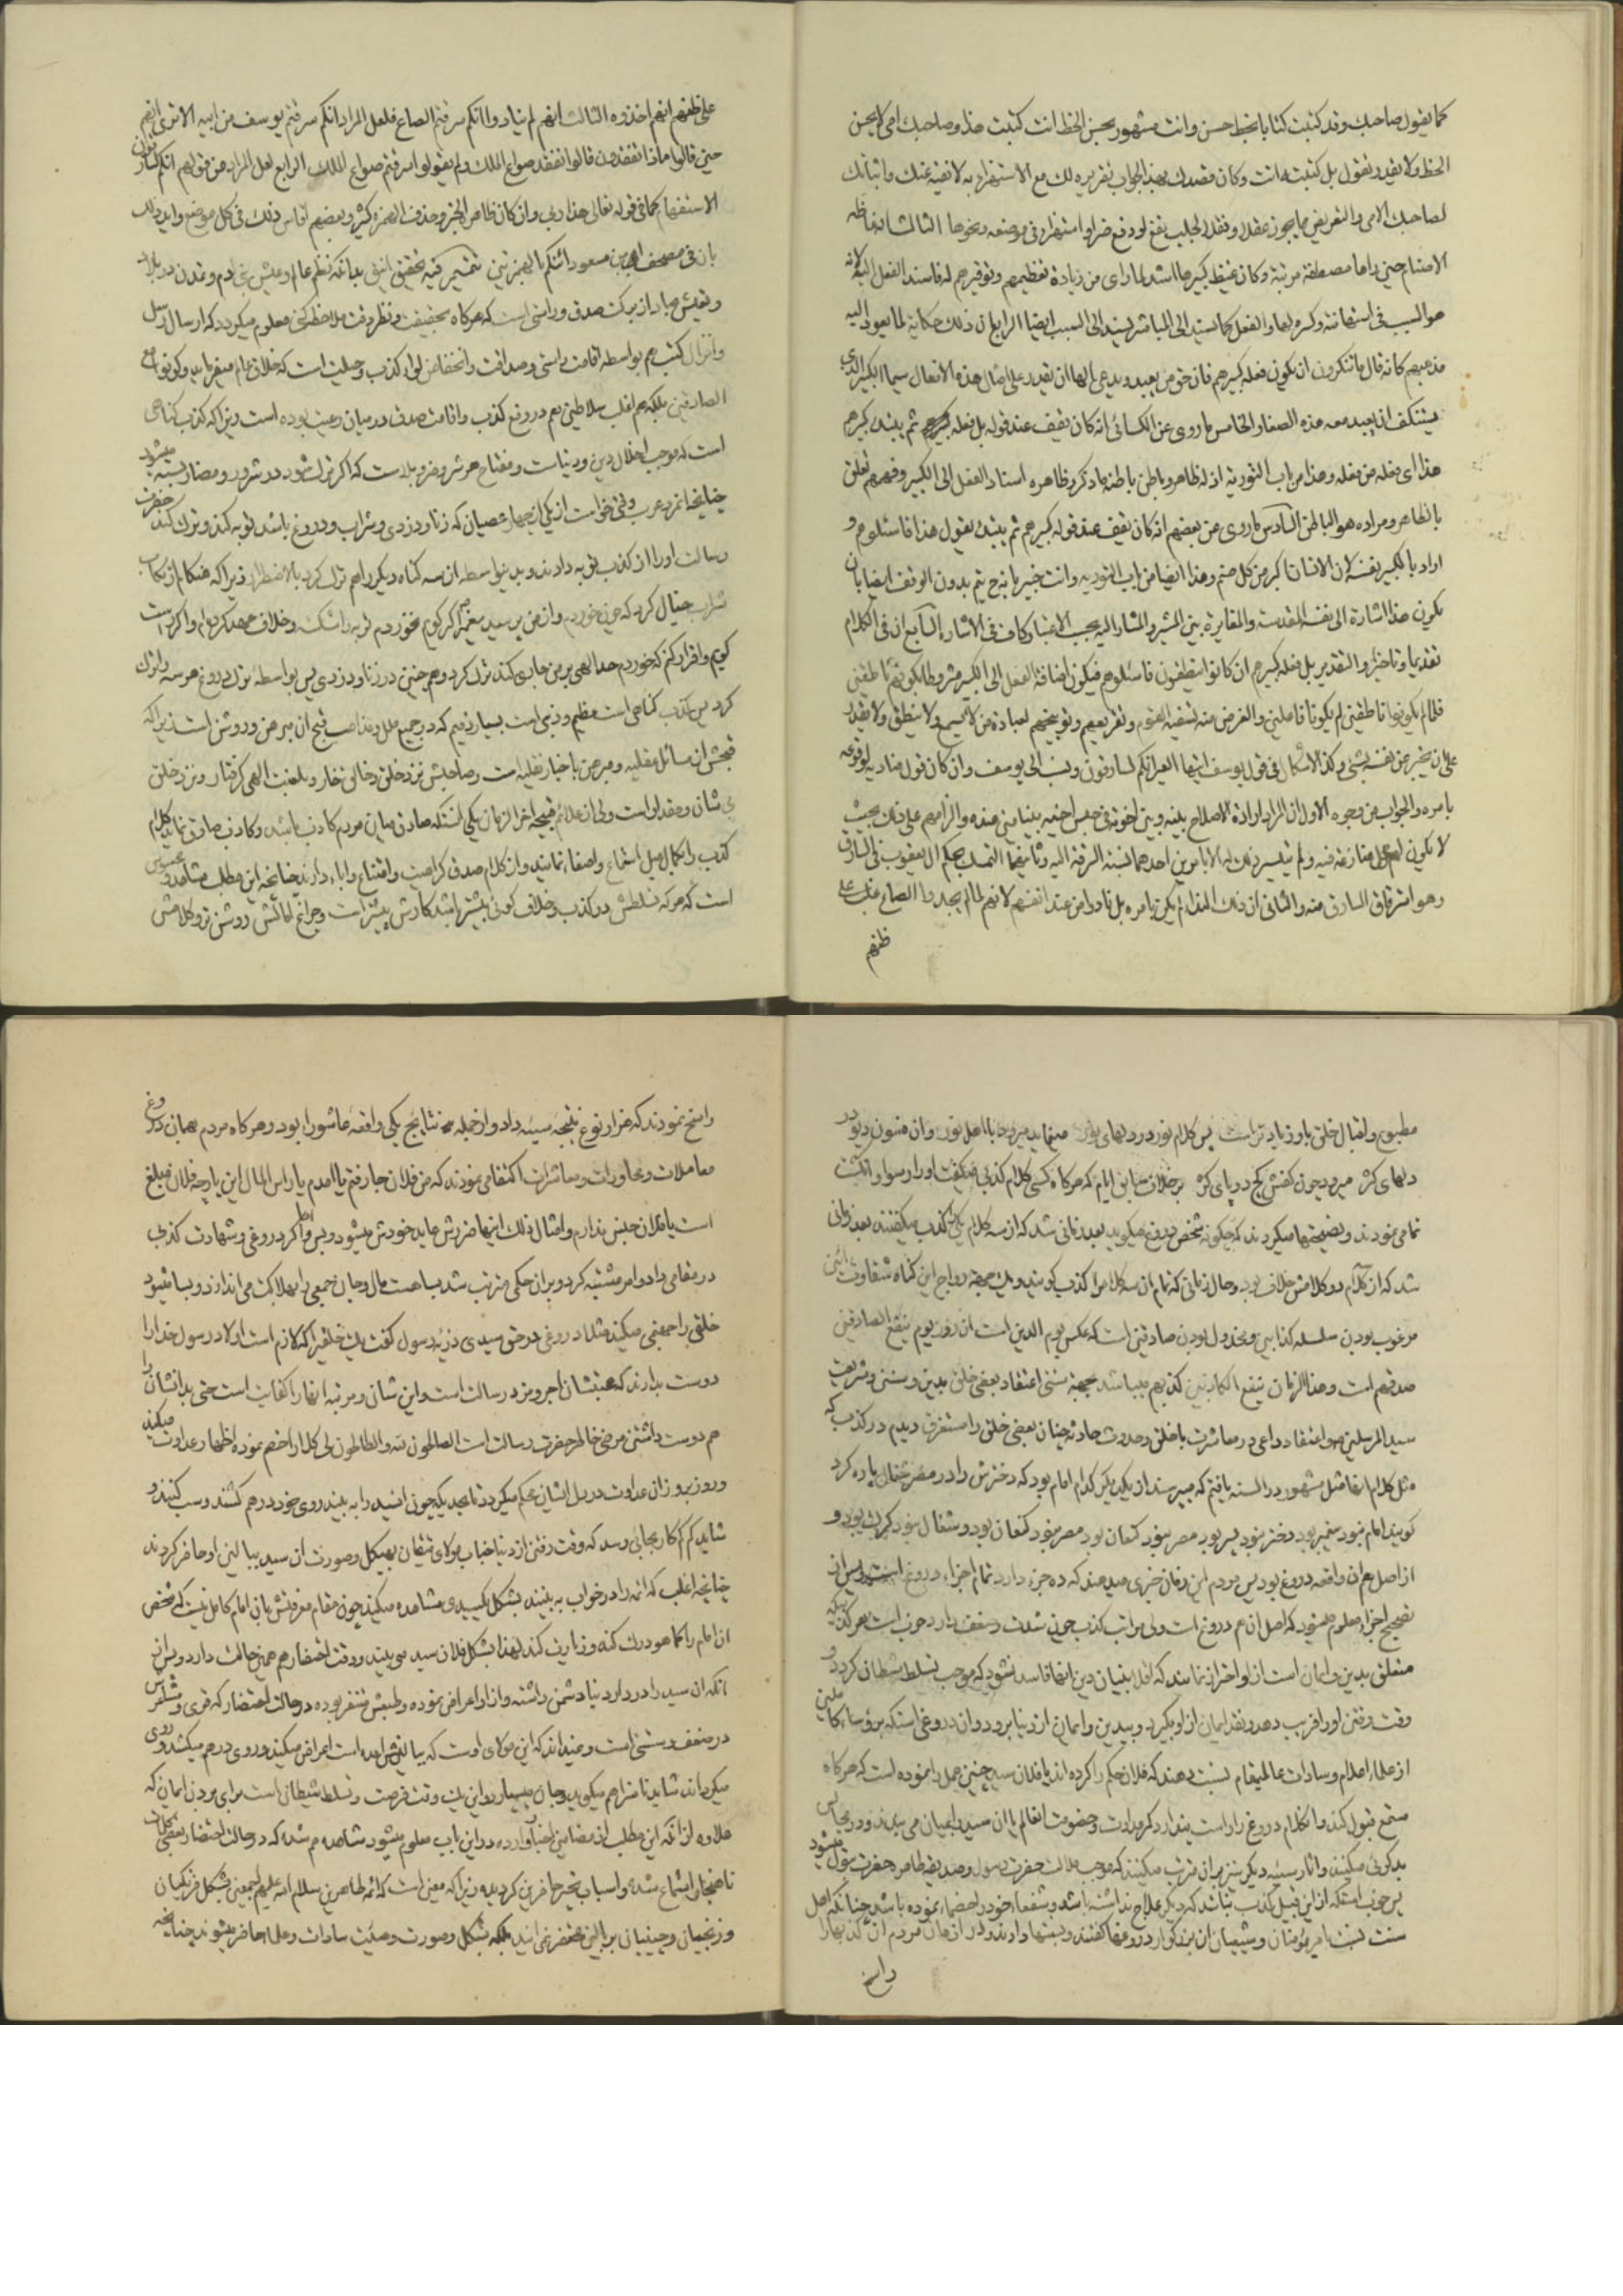 كما يقول صاحبك وقد كتبت كتابا بخط حسن وانت مشهور بحسن الخط انت كتبت هذا وصاحبك امي لا يحسن
الخط ولا يقدر فتقول بل كتبته انت وكان قصدك بهذا الجواب تقريره لك مع الاستهزاء به لا نفيه عنك واثباتك
لصاحبك الامي والتعريض مما يجوز عقلا ونقلا لجلب نفع او دفع ضر او استهزاء في موضعه ونحوها الثالث انه غاظه
الاصنام حين راها مصطفة مرتبة وكان غيظ كبيرها اشد لما راى من زيادة تعظيمهم وتوقيرهم له فاسند الفعل اليه لانه
هو السبب في استهانته وكسره لها والفعل كما يسند الى المباشر يسند الى السبب ايضا الرابع ان ذلك حكاية لما يعود اليه
مذهبهم كانه قال ما تنكرون ان يكون فعله كبيرهم فان حق من يعبد ويدعى الها ان يقدر على امثال هذه الافعال سيما الكبير الذي
يستنكف ان يعبد معه هذه الصغار الخامس ما روي عن الكسائي انه كان يقف عند قوله بل فعله ثم يبتدء كبيرهم
هذا اي فعله من فعله وهذا من باب التورية اذ له ظاهر وباطن باطنه ما ذكر وظاهره اسناد الفعل الى الكبير وفهمهم تعلق
بالظاهر ومراده هو الباطن السادس ما روي عن بعضهم انه كان يقف عند قوله كبيرهم ثم يبتدء يقول هذا فاسئلوهم و
اراد بالكبير نفسه لان الانسان اكبر من كل صنم وهذا ايضا من باب التورية وانت خبير بانه يتم بدون الوقف ايضا بان
يكون هذا اشارة الى نفسه المقدسة والمغايرة بين المشير والمشار اليه بحسب الاعتبار كاف في الاشارة السابع ان في الكلام
تقديما وتاخيرا والتقدير بل فعله كبيرهم ان كانوا ينطقون فاسئلوهم فيكون اضافة الفعل الى الكبير مشروطا بكونهم ناطقين
فلما لم يكونوا ناطقين لم يكونوا فاعلين والغرض منه تسفيه القوم وتقريعهم وتوبيخهم لعبادة من لا يسمع ولا ينطق ولا يقدر
على ان يخبر عن نفسه بشيء وكذا الاشكال في قول يوسف ايتها العير انكم لسارقون ونسب الى يوسف وان كان قول مناديه لوقوعه
بامره والجواب من وجوه الاول ان المراد ارادة الاصلاح بينه وبين اخوته في حبس اخيه بنيامين عنده والزامهم على ذلك بحيث
لا يكون لهم محل منازعة فيه ولم يتيسر ذلك له الا بامرين احدهما نسبة السرقة اليه وثانيهما التمسك بحكم ال يعقوب في السارق
وهو استرقاق السارق منه والثاني ان ذلك النداء لم يكن بامره بل نادوا من عند انفسهم لانهم لما لم يجدوا الصاع غلب على
ظنهم
على ظنهم انهم اخذوه الثالث انهم لم ينادوا انكم سرقتم الصاع فلعل المراد انكم سرقتم يوسف من ابيه الا ترى انهم
حين قالوا ماذا تفقدون قالوا نفقد صواع الملك ولم يقولوا سرقتم صواع الملك الرابع لعل المراد من قولهم انكم لسارقون
الاستفهام كما في قوله تعالى هذا ربي وان كان ظاهره الخبر وحذف الهمزة كثير وبعضهم قاس ذلك في كل موضع وايد ذلك
بان في مصحف ابن مسعود ائنكم بالهمزتين تتميم فيه تحقيق انيق بدانكه نظم عالم وعيش بني ادم وتمدن در بلاد
وتعيش عباد از بركت صدق وراستي است كه هركاه بحقيقت ونظر دقت ملاحظه كني معلوم ميكردد كه ارسال رسل
وانزال كتب هم بواسطه اقامت راستي وصداقت وانخفاض لواء كذب وحيلت است كه خلاق عالم ميفرمايد وكونوا مع
الصادقين بلكه هم اغلب سلاطين هم در رفع كذب واقامت صدق در ميان رعيت بوده است زيرا كه كذب كناهي
است كه موجب اخلال دين ودنيا است ومفتاح هر شر وضر وبلاست كه اكر ترك شود در شرور ومضار بسته ميشود
چنانچه انمرد عرب وقتي خواست از يكي از چهار عصيان كه زنا ودزدي وشراب ودروغ باشد توبه كند وترك كند حضرت
رسالت او را از كذب توبه دادند وبدينواسطه از سه كناه ديكر را هم ترك كرد بالاضطرار زيرا كه هنكام ارتكاب
شراب خيال كرد كه چون خوردم واز من پرسيد پيغمبر اكر كويم نخوردم توبه را شكسته وخلاف عهد كرده ام واكر راست
كويم واقرار كنم كه خوردم حد الهي بر من جاري كند ترك كرد وهم چنين در زنا ودزدي پس بواسطه ترك دروغ هر سه را ترك
كرد پس كذب كناهي است عظيم وذنبي است بسيار ذميم كه در جميع ملل ومذاهب قبح ان مبرهن وروشن است زيرا كه
قبحش از مسائل عقليه ومبرهن باخبار نقليه است وصاحبش نزد خلق وخالق خار وبلعنت الهي كرفتار ونزد خلق
بي شان ومقدار است ولي از علائم قبيحه اخر الزمان يكي انستكه صادق ميان مردم كاذب باشد وكاذب صادق نمايد كلام
كذب را بكمال ميل استماع واصغاء نمايند واز كلام صدق كراهيت وامتناع واباء دارند چنانچه اين مطلب مشاهد ومحسوس
است كه هر كه تسلطش در كذب وخلاف كوئي بيشتر باشد كارش پيشتر است وچراغ لمائش روشن تر وكلامش
مطبوع واقبال خلق باو زيادتر است پس كلام نور در دلهاي نور ميمايد ميرود با اهل نور وان فسون ديو در
دلهاي كژ ميرود چون كفش كج در پاي كژ بر خلاف سابق ايام كه هركاه كسي كلام كذبي ميكفت او را رسوا وانكشت
نما مي نمودند ونصيحتها ميكردند كه چكونه شخص دروغ ميكويد بعد زماني شد كه از سه كلام يكي كذب ميكفتند بعد زماني
شد كه از كلام دو كلامش خلاف بود وحال زماني كه تمام ان سه كلام را كذب كويند ويك جهة رواج اين كناه شقاوت ائين
مرغوب بودن سلسله كذابين ومخذول بودن صادقين است كه عكس يوم الدين است ان روز يوم ينفع الصادقين
صدقهم است وهذا الزمان ينفع الكاذبين كذبهم ميباشد بجهة سستي اعتقاد بعضي خلق بدين وسنن وشريعت
سيد المرسلين واعتقاد داعي در معاشرت با خلق وحدوث حادثه چنان بعضي خلق را مستغرق ديدم در كذب كه
مثل كلام انها مثل مشهور در السنه يافتم كه ميپرسند از يكديكر كدام امام بود كه دخترش را در مصر شغال پاره كرد
كويند امام نبود پيغمبر بود دختر نبود پسر بود مصر نبود كنعان بود مصر نبود كنعان بود وشغال نبود كرك بود و
از اصل هم ان واقعه دروغ بود پس مردم اين زمان خبري ميدهند كه ده جزء دارد تمام اجزاء دروغ است پس از
تصحيح اجزاء معلوم ميشود كه اصل ان هم دروغ است ولي مراتب كذب چون شدت وضعف دارد خوب است هر كذبيكه
متعلق بدين وايمان است از او احتراز نمايند كه اقلا بنيان دين انها فاسد نشود كه موجب تسلط شيطان كردد و
وقت رفتن او را فريب دهد ونقد ايمان از او بكيرد وبيدين وايمان از دنيا برود وان دروغي استكه بر رؤساء كاملين
از علماء اعلام وسادات عاليمقام نسبت دهند كه فلان حكم را كرده اند يا فلان سيد چنين عمل را نموده است كه هركاه
مستمع قبول كند وان كلام دروغ را راست پندارد كم كم عداوت وخصومت انعالم يا ان سيد را بميان مي بندد ودر مجالس
بدكوئي ميكنند واثار سيئه ديكر نيز بر ان ترتب ميكنند كه موجب ملالت حضرت رسول وصديقه طاهره حضرت بتول ميشود
پس خوب استكه از اين قبيل كذب نباشد كه ديكر علاج نداشته باشد وشفعاء خود را خصماء نموده باشد چنانكه اهل
سنت نسبت بامير مؤمنان وشيعيان ان بزركوار دروغها كفتند ونسبتها دادند ودر اذهان مردم ان كذبها را
راسخ
راسخ نمودند كه هزار نوع نتيجه سيئه داد واز جمله نتايج يكي واقعه عاشورا بود وهركاه مردم بهمان دروغ
معاملات ومحاورات ومعاشرات اكتفا مي نمودند كه من فلان جا رفتم يا امدم يا راس المال اين پارچه فلان مبلغ
است يا فلان جنس ندارم وامثال ذلك اينها ضررش عايد خودش ميشود وبس واما اكر دروغي وشهادت كذبي
در مقامي داد وامر مشتبه كرد وبران حكمي مترتب شد بسا هست مال وجان جمعي را بهلاكت مي اندازد وبسا ميشود
خلقي را جهنمي ميكند مثلا دروغي در حق سيدي ذريه رسول كفت يك خلقي را كه لازم است اولاد رسول خدا را
دوست بدارند كه محبتشان اجر ومزد رسالت است واين شان ومرتبه انها را كفايت است حتي بدانشان را
هم دوست داشتن مرضي خاطر حضرت رسالت است الصالحون لله والطالحون لي كلا را خصم نموده اظهار عداوت ميكند
وروز بروز ان عداوت در دل ايشان محكم ميكردد تا بحديكه چون انسيد را به بيند روي خود در هم كشند وسب كنند و
شايد كم كم كار بجائي رسد كه وقت رفتن از دنيا جناب مولاي متقيان بهيكل وصورت ان سيد ببالين او حاضر كردند
چنانچه اغلب كه ائمه را در خواب به بينند بشكل يكسيدي مشاهده ميكنند چون مقام معرفتش بان امام كامل نيست كه شخص
ان امام را كما هو درك كند وزيارت كند لهذا بشكل فلان سيد مي بيند ووقت احتضار هم همين حالت دارد وپس از
انكه ان سيد را در دار دنيا دشمن داشته واز او اعراض نموده وطبعش متنفر بوده در حالت احتضار كه قوى ومشاعرش
در ضعف وسستي است ونميداند كه اين مولاي اوست كه ببالينش امده است اعراض ميكند وروي در هم ميكشد وروي
ميكرداند شايد ناسزا هم ميكويد وجان ميسپارد واين يك وقت فرصت وتسلط شيطان است براي بردن ايمان كه
علاوه از انكه اين مطلب از مضامين اخبار وارده در اين باب معلوم ميشود مشاهده هم شده كه در حالت احتضار بعضي كلمات
ناهنجار استماع شده واسباب تحير حاضرين كرديده زيرا كه معين است كه ائمه طاهرين سلام الله عليهم اجمعين بشكل فرنكيان
وزنجيان وچينيان ببالين محتضر نمي ايند بلكه بشكل وصورت وهيئت سادات وعلما حاضر ميشوند چنانچه